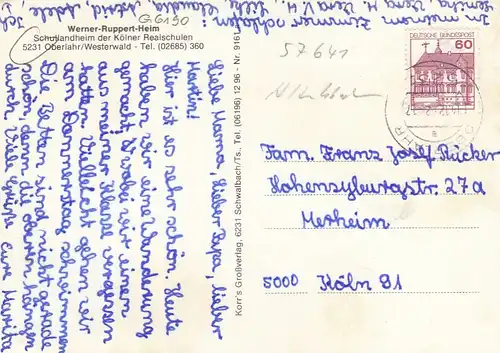 G 6190
57641
Werner-Ruppert-Heim
Schullandheim der Kölner Realschulen
5231 Oberlahr/Westerwald - Tel. (02685) 360
Liebe Mama, lieber Papa, lieber
Martin!
Hier ist es sehr schön. Heute
haben wir eine Wanderung
gemacht, wobei wir einen
aus meiner Klasse vergessen
hatten. Vielleicht gehen wir
am Donnerstag schwimmen.
Die Betten sind nicht gerade
schön, denn die oberen hängen
durch. Viele Grüße eure Marita
In meinem Zimmer schlafen:
Claudia
Astrid,
Ich
Korr's Großverlag, 6231 Schwalbach/Ts., Tel. (06196) 12 96 - Nr. 9161
DEUTSCHE BUNDESPOST
60
Fam. Franz Josef Rücker
Hohensyburgstr. 27a
Merheim
5000 Köln 91